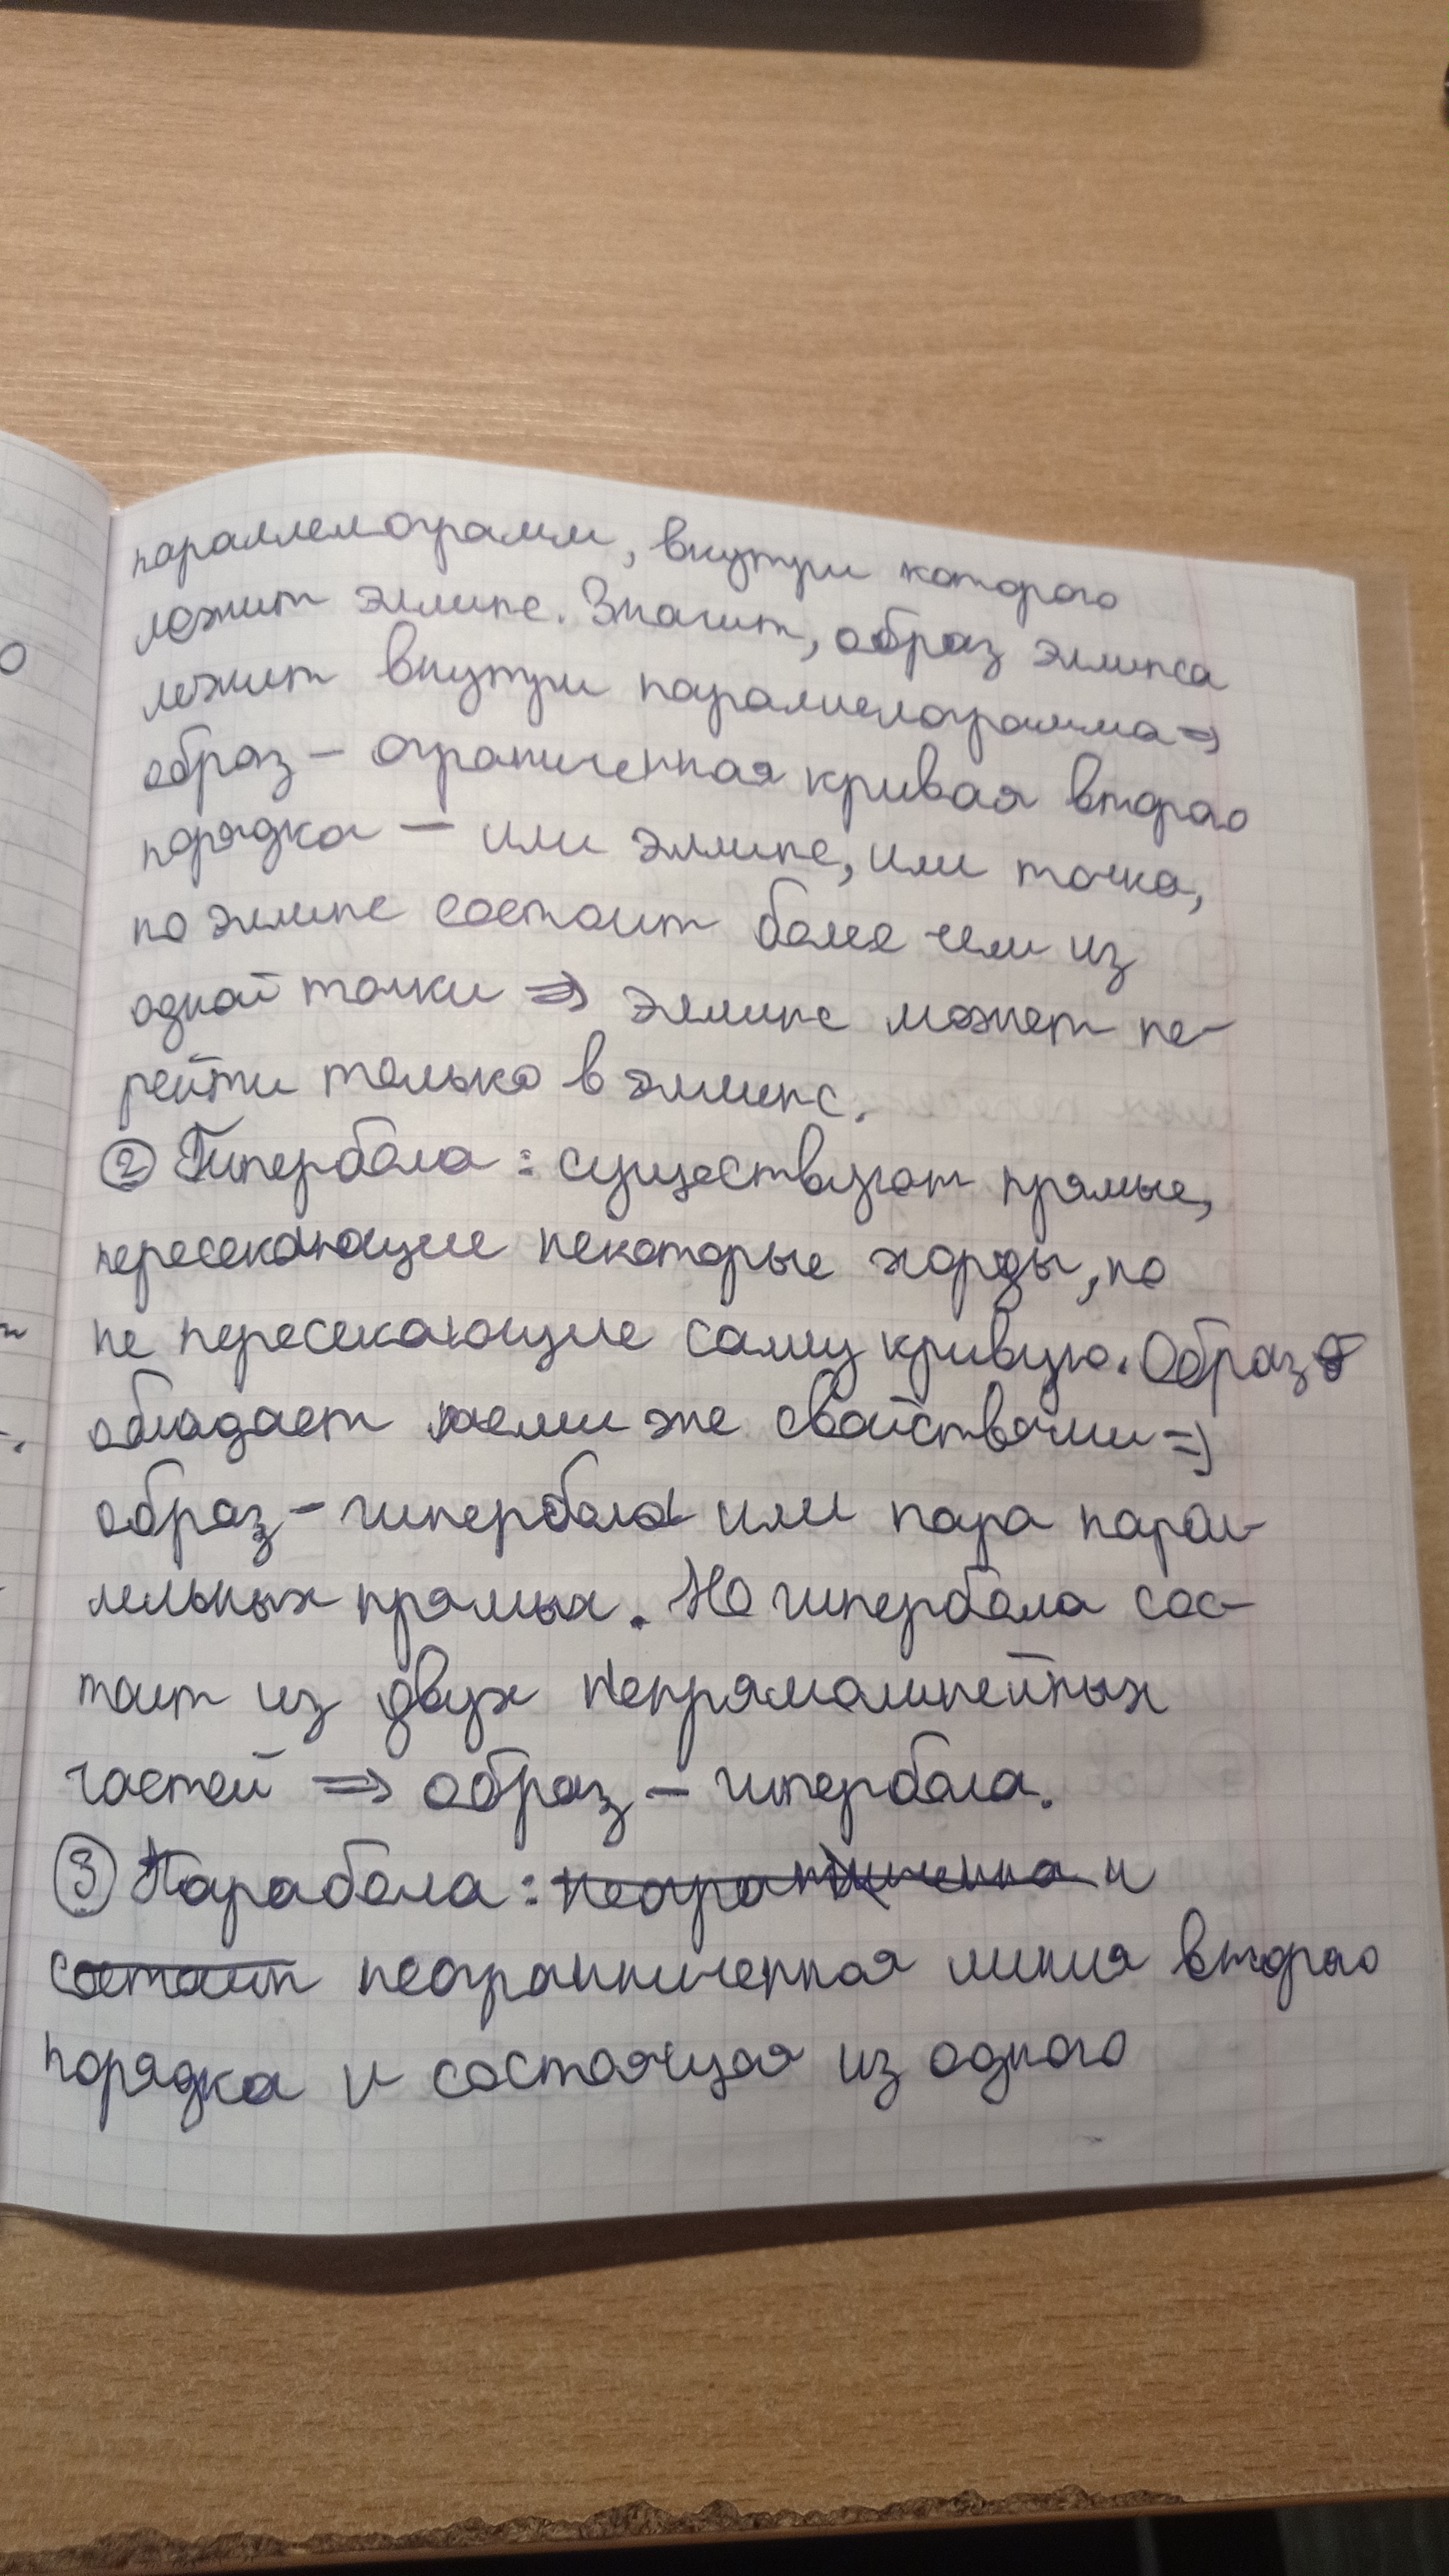 параллелограмм, внутри которого
лежит эллипс. Значит, образ эллипса
лежит внутри параллелограмма ⇒
образ – ограниченная кривая второго
порядка – или эллипс, или точка,
но эллипс состоит более чем из
одной точки ⇒ эллипс может пе-
рейти только в эллипс.
② Гипербола: существуют прямые,
пересекающие некоторые хорды, но
не пересекающие саму кривую. Образ
обладает теми же свойствами ⇒
образ – гипербола или пара парал-
лельных прямых. Но гипербола сос-
тоит из двух непрямолинейных
частей ⇒ образ – гипербола.
③ Парабола: неограниченна и
состоит неограниченная линия второго
порядка и состоящая из одного